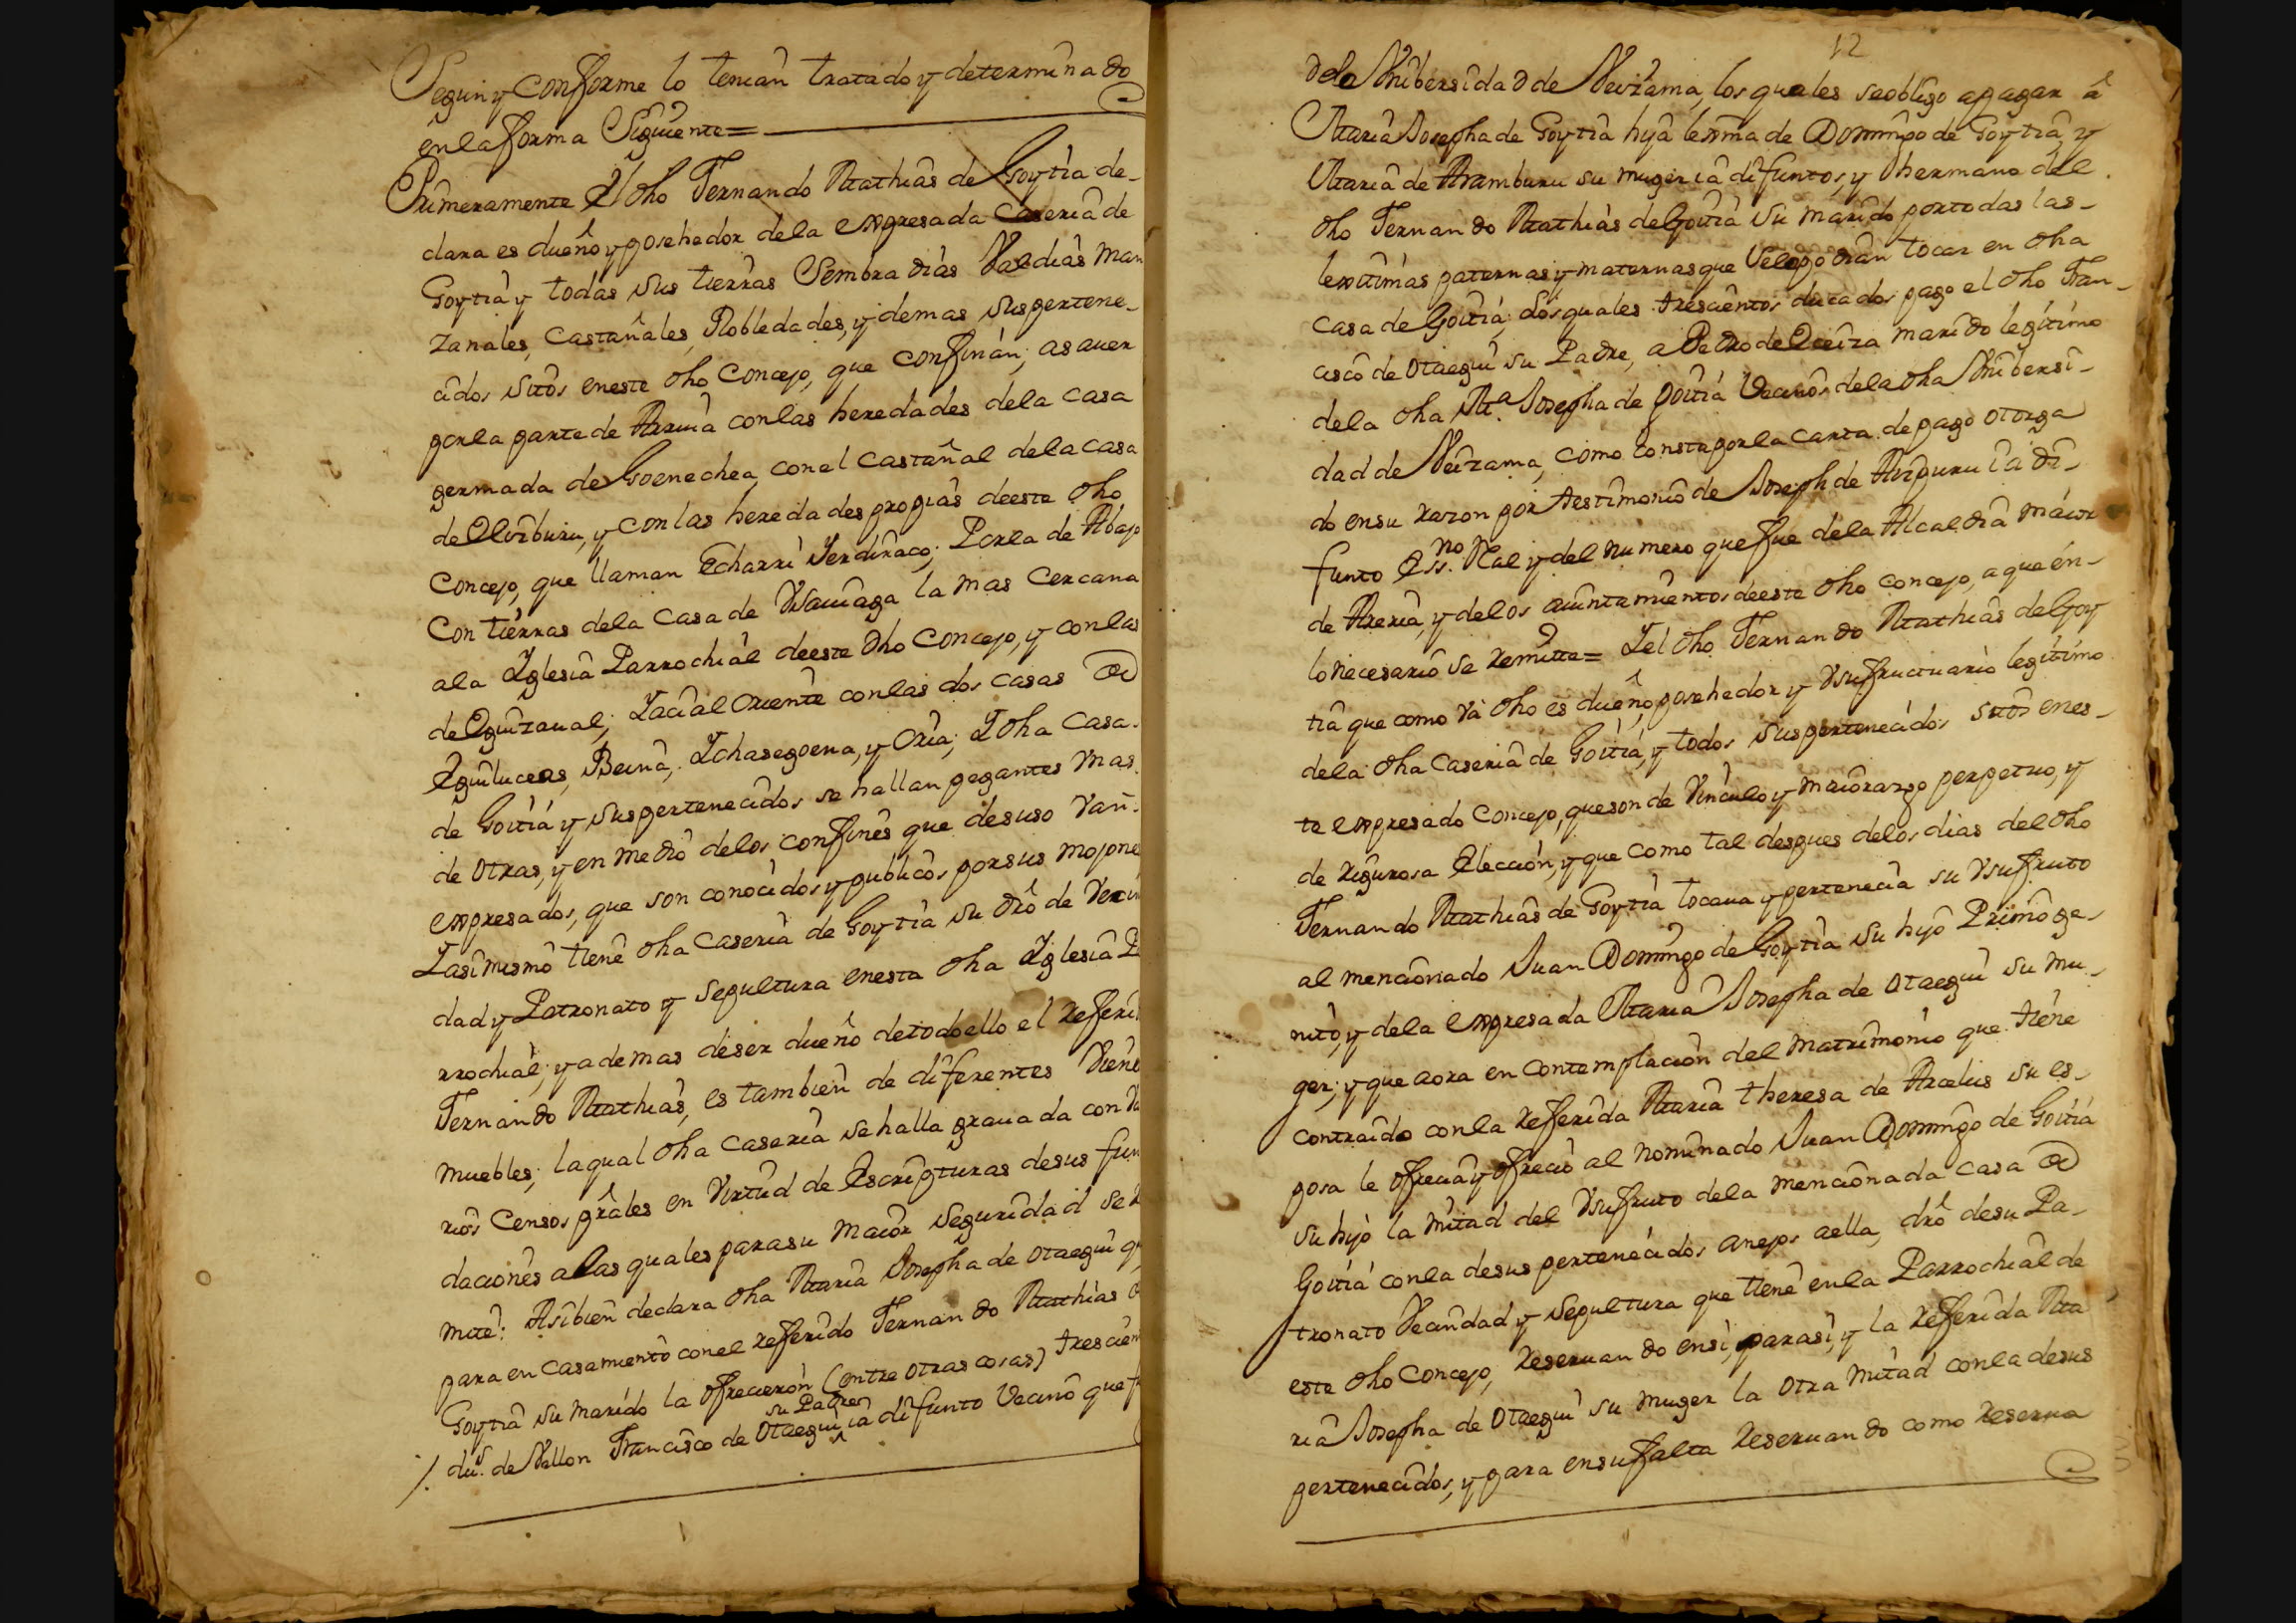 Segun y conforme lo tenian tratado y determinado
en la forma Siguiente=
Primeramente el dho Fernando Mathias de Goytia de-
clara es dueño y posehedor de la expresada caseria de
Goytia y todas sus tierras Sembradias Valdias Man
zanales, Castañales, Robledades, y demas sus pertene-
cidos sitos en este dho Concejo, que confinan; asauer
por la parte de Arriua con las heredades de la casa
germada de Goenechea, con el castañal de la casa
de, y con las heredades propias de este dho
Concejo, que llaman Echarri Verdinaco; Por la de Abajo
Con tierras de la Casa de Ysauiaga la mas Cercana
a la Yglesia Parrochial de este dho Concejo, y con las
de Eguizaual; Y acia al Oriente con las dos casas
Eguiluceas, Beina, Ychasegoena, y Oria; Y dha Casa
de Goitia y sus pertenecidos se hallan pegantes mas
de otras, y en medio de los confines que de suso van
expresados, que son conocidos y publicos por sus mojone
Y asimismo tiene dha Caseria de Goytia su dro de Vecin
dad y Patronato y sepultura en esta dha Yglesia P
rrochial; y ademas de ser dueño de todo ello el referi
Fernando Mathias, es tambien de diferentes Viene
muebles; la qual dha caseria se halla grauada con va
rios Censos prâles en Virtud de Escripturas de sus fun
daciones a las quales para su maior seguridad se re
mite: Asibien declara dha Maria Josepha de Otaegui q
para en casamiento con el referido Fernando Mathias d
Goytia su marido la ofrecieron (entre otras cosas) trescien
su Padre
/. dus. de Vellon Francisco de Otaegui ia difunto Vecino que f
12
de la Vnibersidad de Veizama, los quales se obligo a pagar à
Maria Josepha de Goytia hija lexma de Domingo de Goytia, y
Maria de Aramburu su muger ia difuntos, y hermana del
dho Fernando Mathias de Goitia su marido por todas las
lexitimas paternas y maternas que Se le podian tocar en dha
casa de Goitia; los quales trescientos ducados pago el dho Fran-
cisco de Otaegui su Padre, a Pedro de marido legitimo
de la dha Ma. Josepha de Goitia Vecinos de la dha Vnibersi-
dad de Veizama, como consta por la carta de pago otorga
do en su razon por testimonio de Joseph de ia di-
funto Essno. Ral y del numero que fue de la Alcaldia maior
de Areria, y de los aiuntamientos de este dho concejo, a que en
lo necesario se remitte= Y el dho Fernando Mathias de Goy
tia que como va dho es dueño, posehedor y Vsufructuario legitimo
de la dha Caseria de Goitia, y todos sus pertenecidos sitos en es-
te expresado Concejo, que son de Vinculo y maiorazgo perpetuo, y
de rigurosa Eleccion, y que como tal despues de los dias del dho
Fernando Mathias de Goytia tocaua y pertenecia su Vsufruto
al mencionado Juan Domingo de Goytia su hijo Primoge-
nito, y de la expresada Maria Josepha de Otaegui su mu-
ger; y que aora en contemplacion del matrimonio que tiene
contraido con la referida Maria theresa de Arcelus su es-
posa le ofrecia y ofrecio al nominado Juan Domingo de Goitia
su hijo la mitad del Vsufruto de la mencionada casa
Goitia con la de sus pertenecidos anejos a ella, dro de su Pa-
tronato Vecindad y sepultura que tiene en la Parrochial de
este dho Concejo, reseruando en si, para si, y la referida Ma
ria Josepha de Otaegui su muger la otra mitad con la de sus
pertenecidos, y para en su falta reseruando como reserua